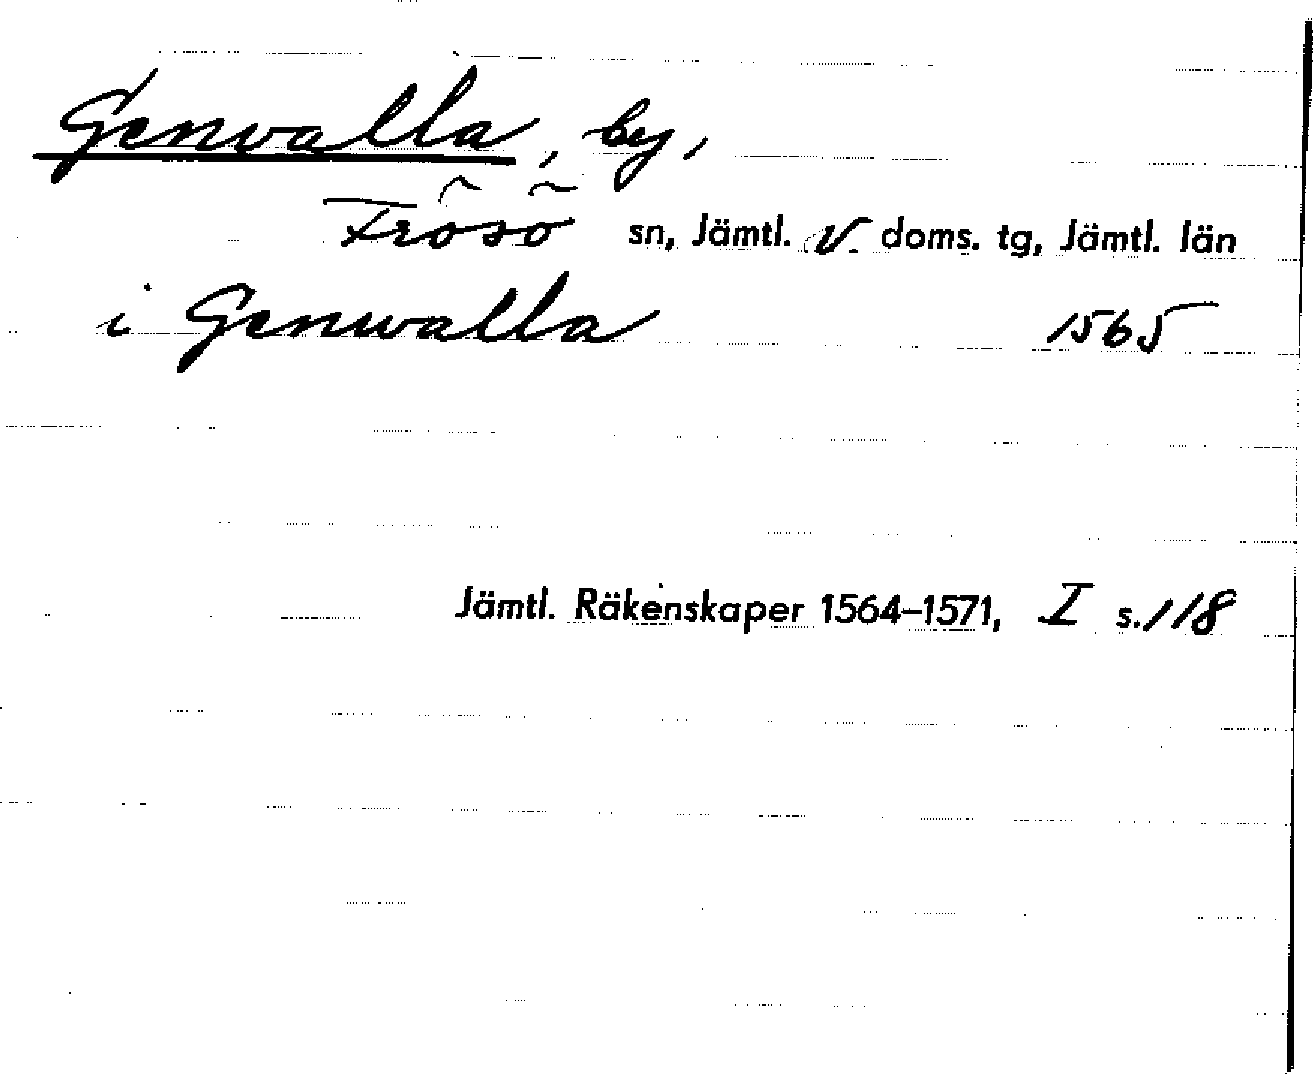 Genvalla, by,
Frösö sn, Jämtl. V. doms. tg, Jämtl. län
i Genwalla 1565
Jämtl. Räkenskaper 1564–1571, I s. 118